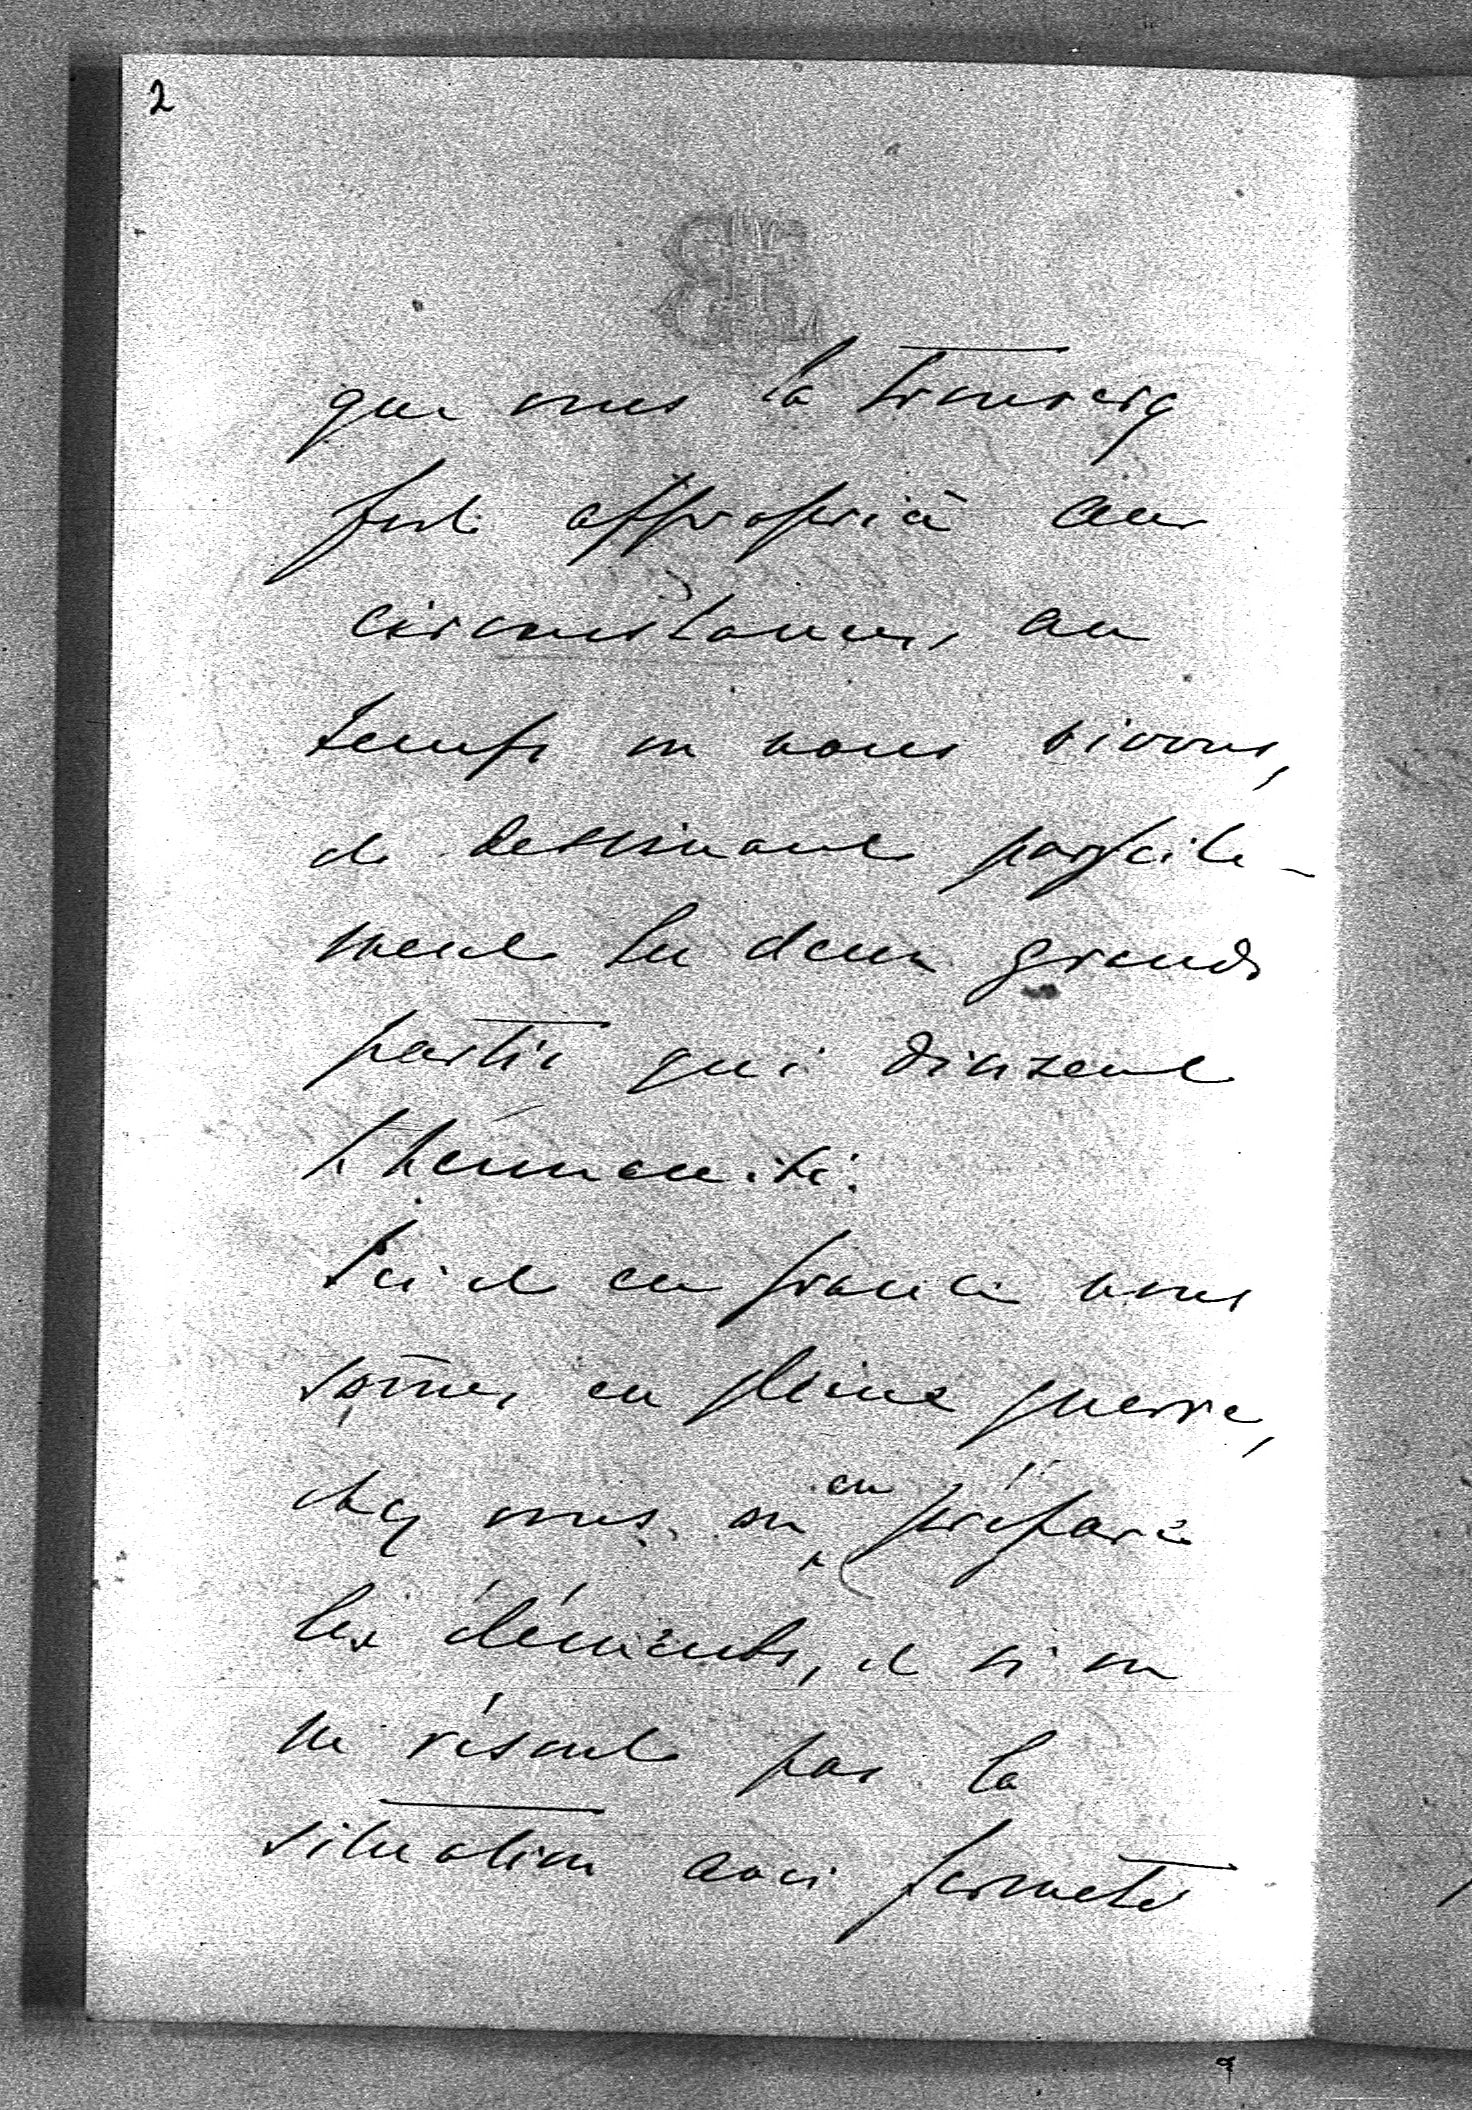 2
que vous la trouverez
fort appropriée aux
circonstances, au
temps où nous vivons,
et dessinant parfaite-
ment les deux grands
partis qui divisent
l'humanité.
Ici et en france nous
sommes en pleine guerre,
chez vous, on en prépare
les éléments, et si on
ne résout pas la
situation avec fermeté